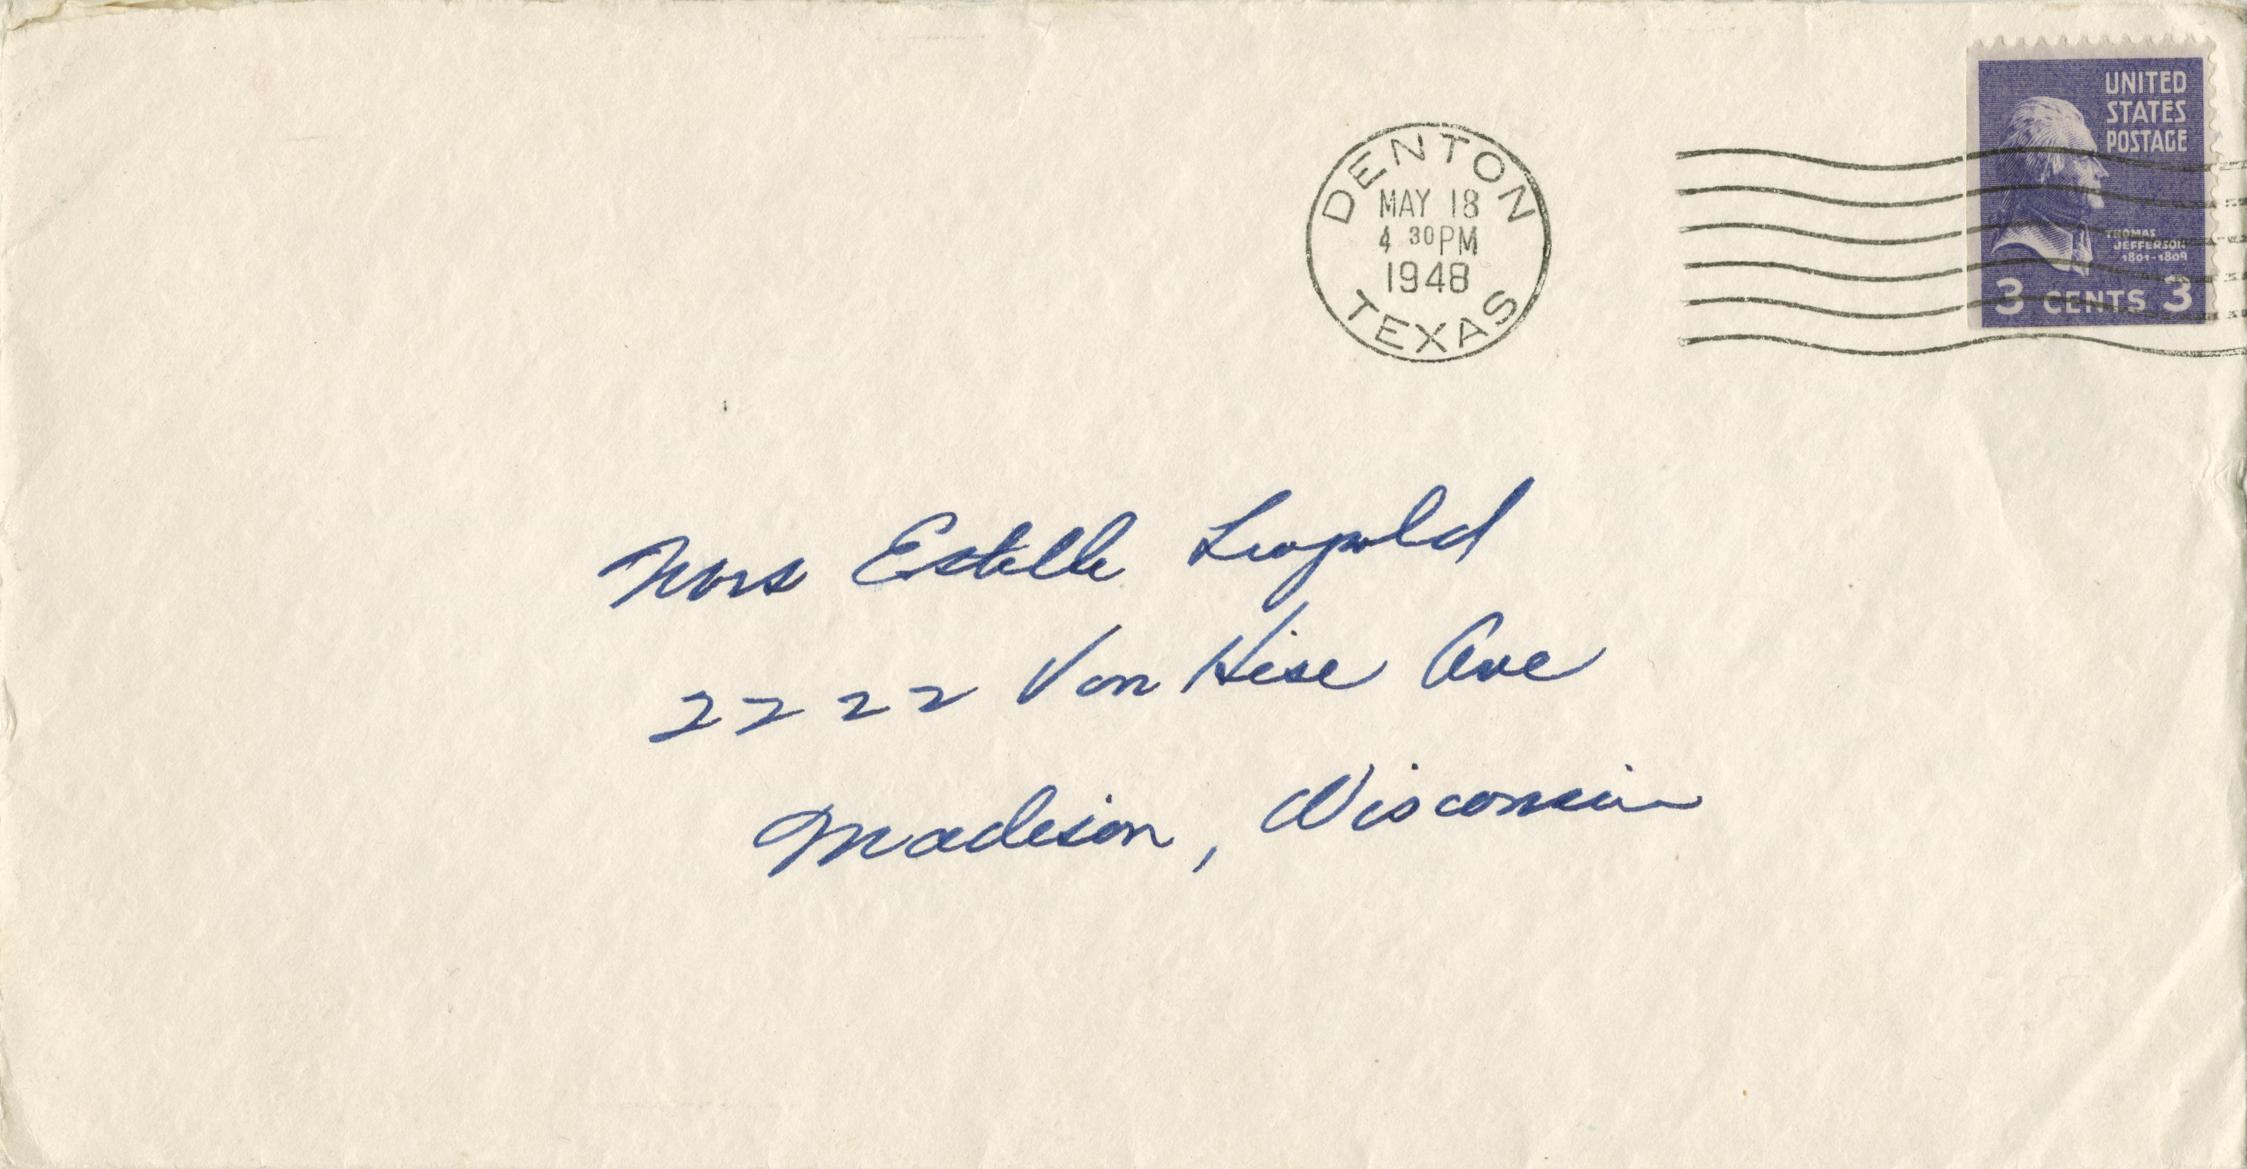 UNITED
STATES
POSTAGE
DENTON
MAY 18
4 30 PM
1948
TEXAS
THOMAS
JEFFERSON
1801-1809
3 CENTS 3
Mrs Estella Leopold
2222 Van Hise Ave
Madison, Wisconsin